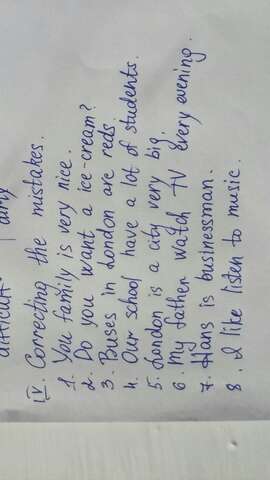 difficult dirty
IV. Correcting the mistakes.
1. You family is very nice.
2. Do you want a ice-cream?
3. Buses in London are reds.
4. Our school have a lot of students.
5. London is a city very big.
6. My father watch TV every evening.
7. Hans is businessman.
8. I like listen to music.